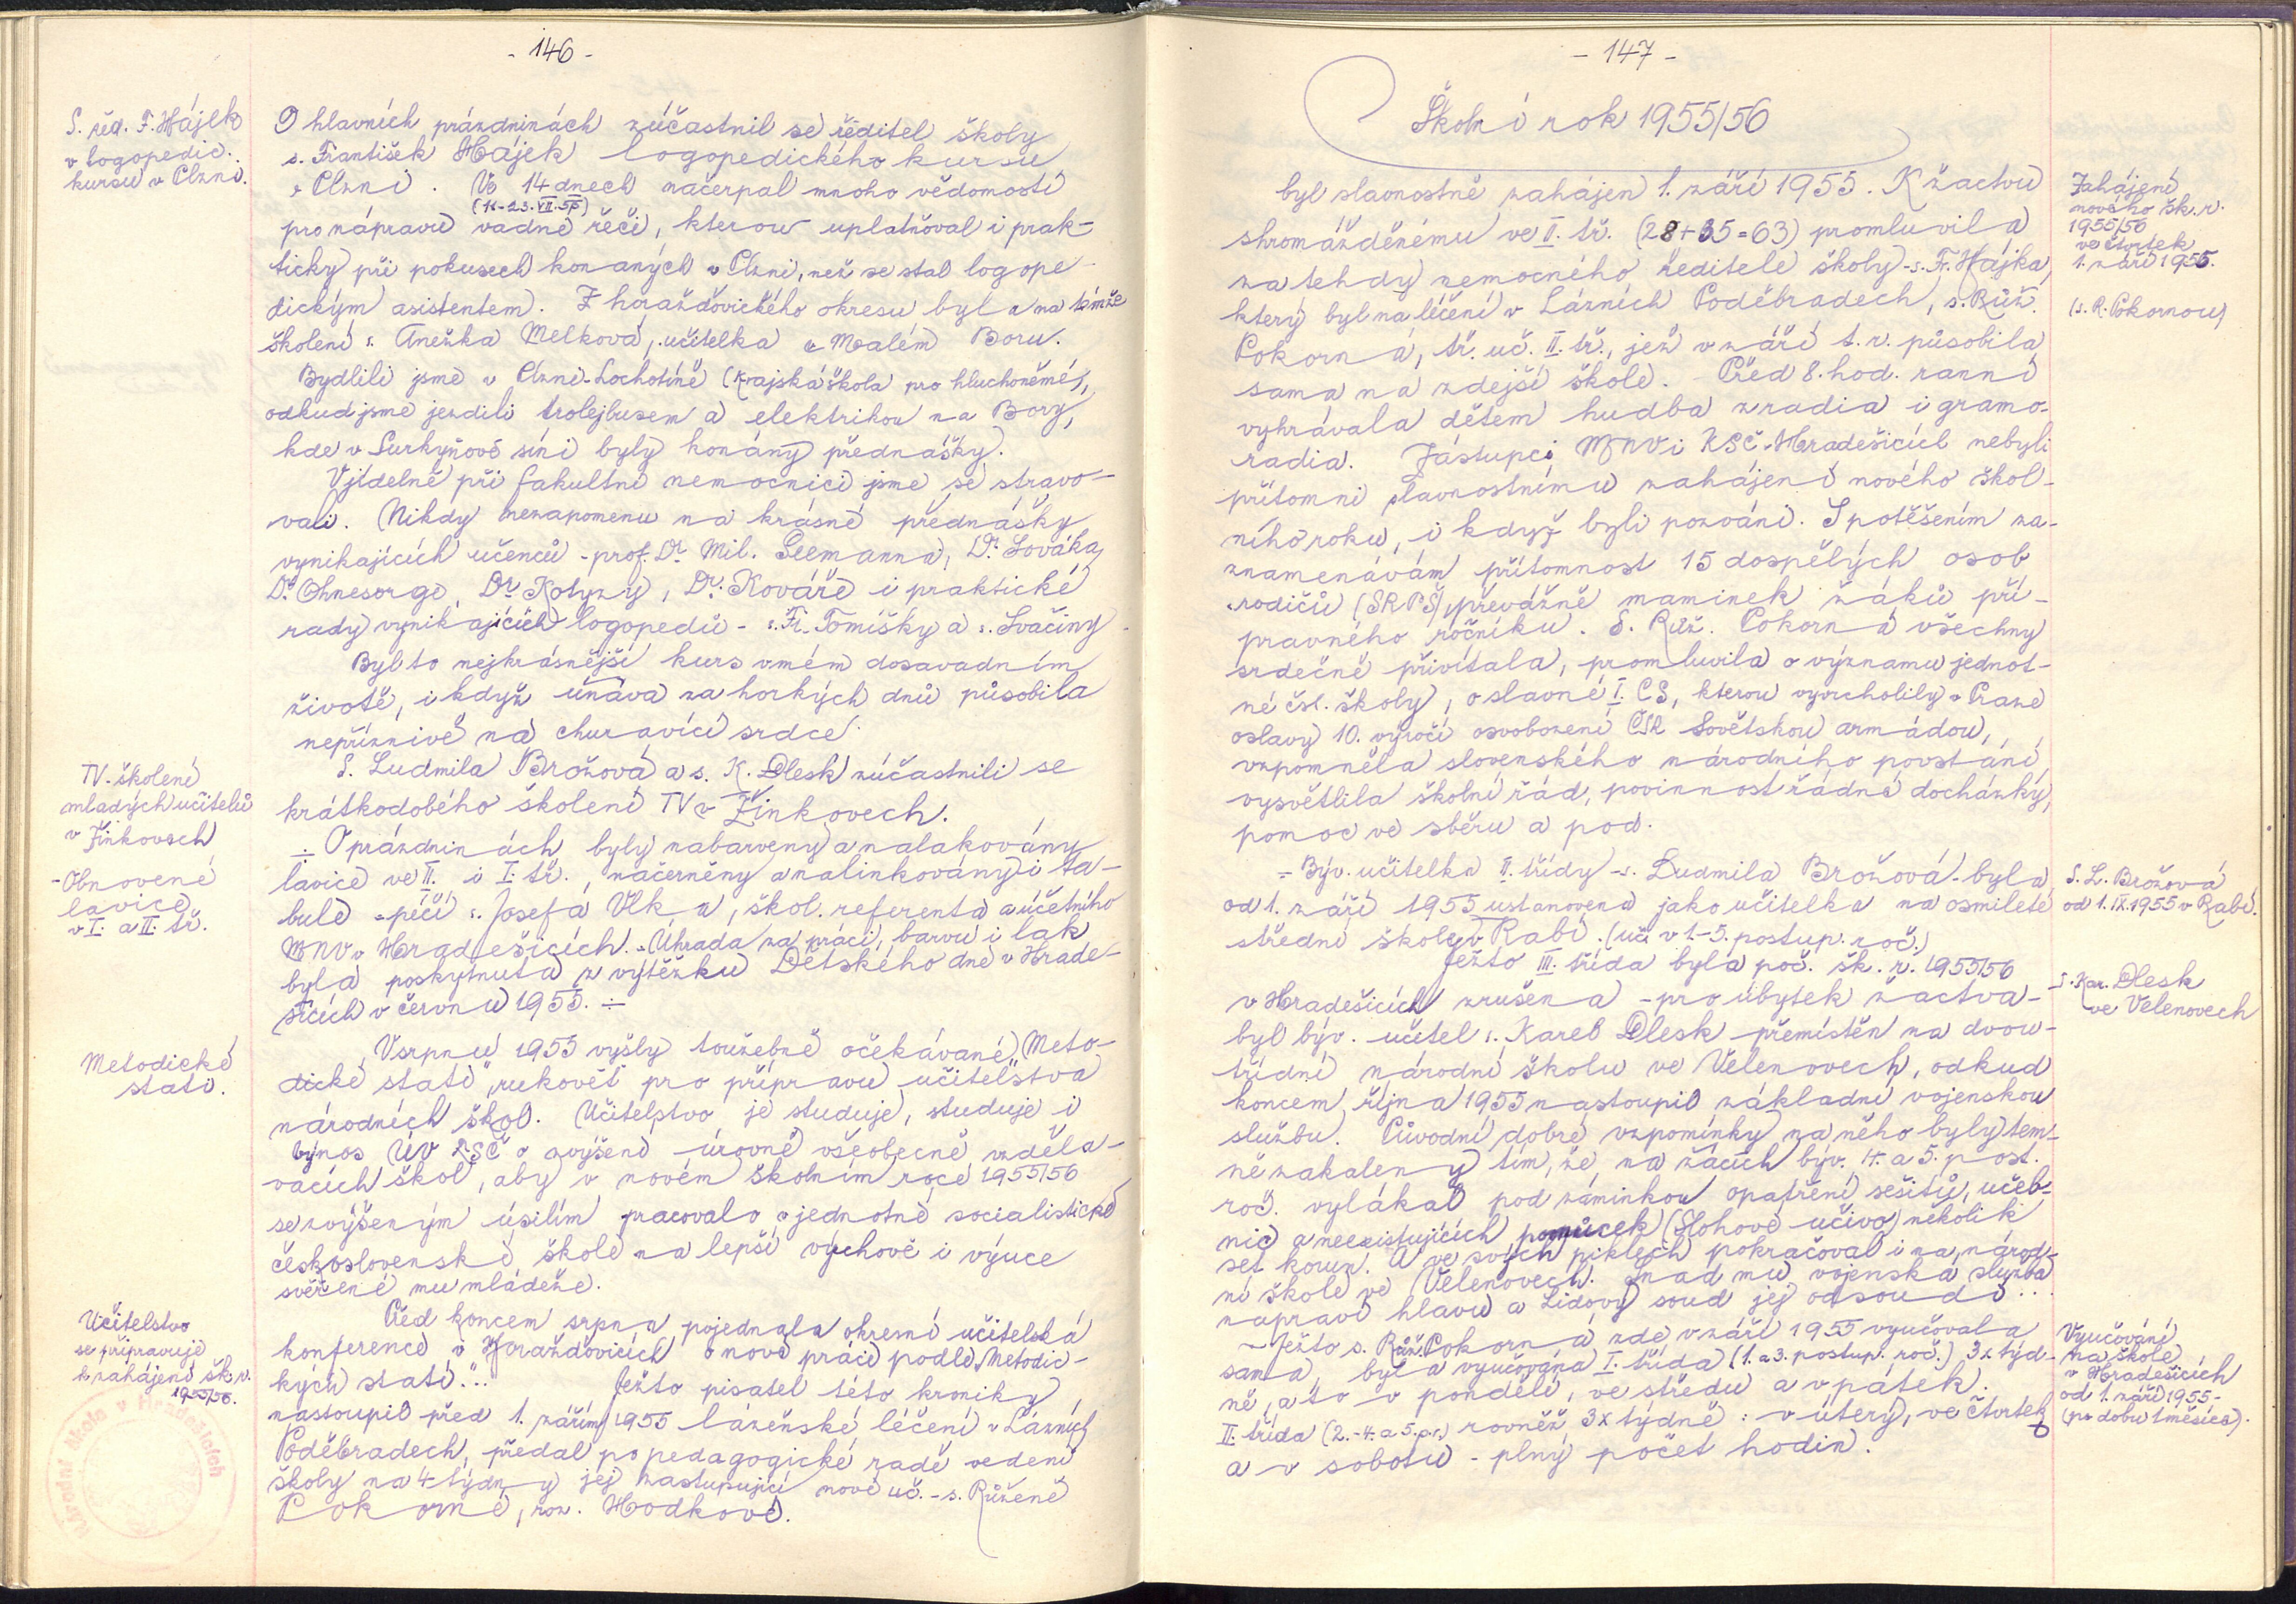 - 146 -
S. řed. F. Hájek
v logopedic.
kursu v Plzni.
O hlavních prázdninách zúčastnil se ředitel školy
s. František Hájek logopedického kursu
v Plzni. Ve 14 dnech načerpal mnoho vědomostí
pro nápravu vadné řeči, kterou uplatňoval i prak-
ticky při pokusech konaných v Plzni, než se stal logope-
dickým asistentem. Z horažďovického okresu byla na témže
školení s. Anežka Melková, učitelka v Malém Boru.
Bydlili jsme v Plzni-Lochotíně (Krajská škola pro hluchoněmé),
odkud jsme jezdili trolejbusem a elektrikou na Bory,
kde v Purkyňově síni byly konány přednášky.
V jídelně při fakultní nemocnici jsme se stravo-
vali. Nikdy nezapomenu na krásné přednášky
vynikajících učenců - prof. Dr. Mil. Seemanna, Dr. Sováka,
Dr. Ohnesorge, Dr. Kotyzy, Dr. Kováře i praktické
rady vynikajících logopedů - s. Fr. Tomíšky a s. Svačiny.
Byl to nejkrásnější kurs v mém dosavadním
životě, i když únava za horkých dnů působila
nepříznivě na churavící srdce.
TV-školení
mladých učitelů
v Žinkovech
S. Ludmila Brožová a s. K. Dlesk zúčastnili se
krátkodobého školení TV v Žinkovech.
- Obnovené
lavice
v I. a II. tř.
O prázdninách byly nabarveny a nalakovány
lavice ve II. i I. tř., načerněny a nalinkovány i ta-
bule - péčí s. Josefa Vlka, škol. referenta a účetního
MNV v Hradešicích. - Úhrada za práci, barvu i lak
byla poskytnuta z výtěžku Dětského dne v Hrade-
šicích v červnu 1955.
Metodické
stati.
V srpnu 1955 vyšly toužebně očekávané „Meto-
dické stati", rukověť pro přípravu učitelstva
národních škol. Učitelstvo je studuje, studuje i
výnos ÚV KSČ o zvýšení úrovně všeobecně vzděla-
vacích škol, aby v novém školním roce 1955/56
se zvýšeným úsilím pracovalo v jednotné socialistické
československé škole na lepší výchově i výuce
svěřené mu mládeže.
Učitelstvo
se připravuje
k zahájení šk. r.
1955/56.
Před koncem srpna pojednala okresní učitelská
konference v Horažďovicích o nové práci podle „Metodic-
kých statí"... Ježto pisatel této kroniky
nastoupil před 1. zářím 1955 lázeňské léčení v Lázních
Poděbradech, předal po pedagogické radě vedení
školy na 4 týdny jej zastupující nové uč. - s. Růženě
Pokorné, roz. Hodkové.
Národní škola v Hradešicích
- 147 -
Školní rok 1955/56
Zahájení
nového šk. r.
1955/56
ve čtvrtek
1. září 1955.
(s. R. Pokornou)
byl slavnostně zahájen 1. září 1955. K žactvu
shromážděnému ve II. tř. (28+35=63) promluvila
za tehdy nemocného ředitele školy - s. Fr. Hájka,
který byl na léčení v Lázních Poděbradech, s. Růž.
Pokorná, tř. uč. II. tř., jež v září t. r. působila
sama na zdejší škole. Před 8. hod. ranní
vyhrávala dětem hudba z radia i gramo-
radia. Zástupci MNV i KSČ v Hradešicích nebyli
přítomni slavnostnímu zahájení nového škol-
ního roku, i když byli pozváni. S potěšením za-
znamenávám přítomnost 15 dospělých osob
- rodičů (SRPŠ), převážně maminek žáků pří-
pravného ročníku. S. Růž. Pokorná všechny
srdečně přivítala, promluvila o významu jednot-
né čsl. školy, o slavné I. CS, kterou vyvrcholily v Praze
oslavy 10. výročí osvobození ČSR Sovětskou armádou,
vzpomněla slovenského národního povstání,
vysvětlila školní řád, povinnost řádné docházky,
pomoc ve sběru a pod.
S. L. Brožová
od 1. IX. 1955 v Rabí.
- Býv. učitelka II. třídy - s. Ludmila Brožová - byla
od 1. září 1955 ustanovena jako učitelka na osmileté
střední škole v Rabí. (uč. v 1.-5. postup. roč.)
S. Kar. Dlesk
ve Velenovech
Ježto III. třída byla poč. šk. r. 1955/56
v Hradešicích zrušena - pro úbytek žactva -
byl býv. učitel s. Karel Dlesk přemístěn na dvou-
třídní národní školu ve Velenovech, odkud
koncem října 1955 nastoupil základní vojenskou
službu. Původní dobré vzpomínky na něho byly tem-
ně zakaleny tím, že na žácích býv. 4. a 5. post.
roč. vylákal pod záminkou opatření sešitů, učeb-
nic a neexistujících pomůcek (Slohové učivo) několik
set korun. A ve svých piklech pokračoval i na národ-
ní škole ve Velenovech. Snad mu vojenská služba
napraví hlavu a Lidový soud jej odsoudí...
Vyučování
na škole
v Hradešicích
od 1. září 1955 -
(po dobu 1 měsíce).
- Ježto s. Růž. Pokorná zde v září 1955 vyučovala
sama, byla vyučována I. třída (1. a 3. postup. roč.) 3x týd-
ně, a to v pondělí, ve středu a v pátek.
II. třída (2. - 4. a 5. p. r.) rovněž 3x týdně: v úterý, ve čtvrtek
a v sobotu - plný počet hodin.